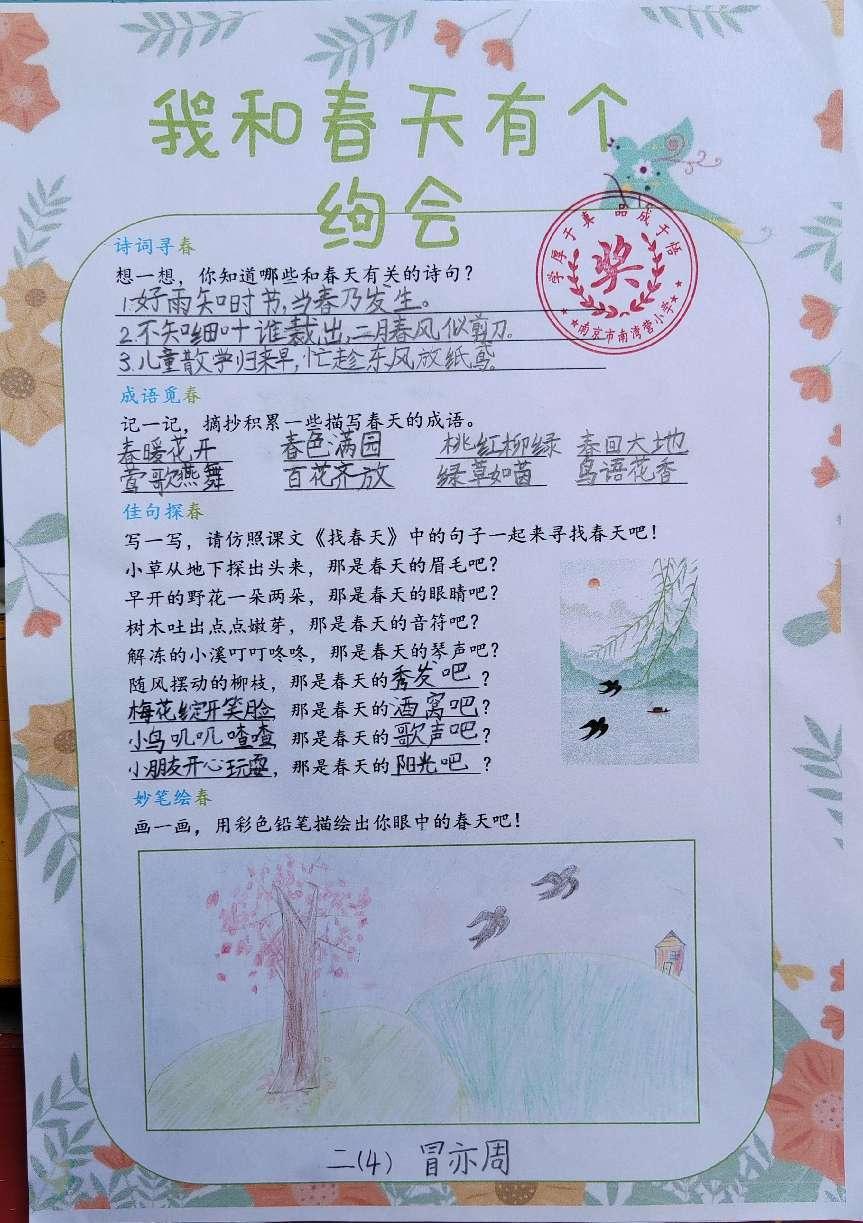 我和春天有个
绚会
诗词寻春
想一想，你知道哪些和春天有关的诗句？
1.好雨知时节,当春乃发生。
2.不知细叶谁裁出,二月春风似剪刀。
3.儿童散学归来早,忙趁东风放纸鸢。
学厚于真 品成于悟
奖
南京市南湾营小学
成语觅春
记一记，摘抄积累一些描写春天的成语。
春暖花开 春色满园 桃红柳绿 春回大地
莺歌燕舞 百花齐放 绿草如茵 鸟语花香
佳句探春
写一写，请仿照课文《找春天》中的句子一起来寻找春天吧！
小草从地下探出头来，那是春天的眉毛吧？
早开的野花一朵两朵，那是春天的眼睛吧？
树木吐出点点嫩芽，那是春天的音符吧？
解冻的小溪叮叮咚咚，那是春天的琴声吧？
随风摆动的柳枝，那是春天的秀发吧？
梅花绽开笑脸，那是春天的酒窝吧？
小鸟叽叽喳喳，那是春天的歌声吧？
小朋友开心玩耍，那是春天的阳光吧？
妙笔绘春
画一画，用彩色铅笔描绘出你眼中的春天吧！
二(4) 冒亦周